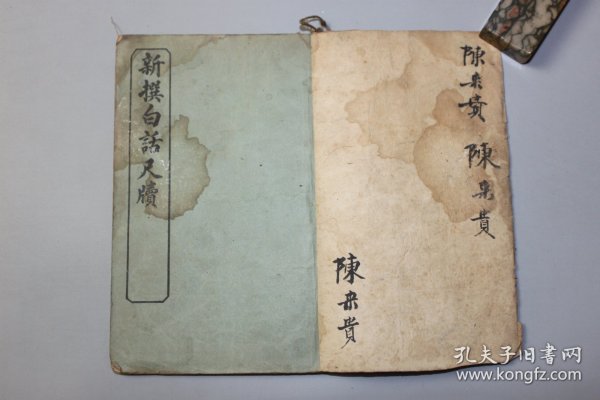 新撰白話尺牘
陳
貴
陳
貴
陳
貴
孔夫子旧书网
www.kongfz.com